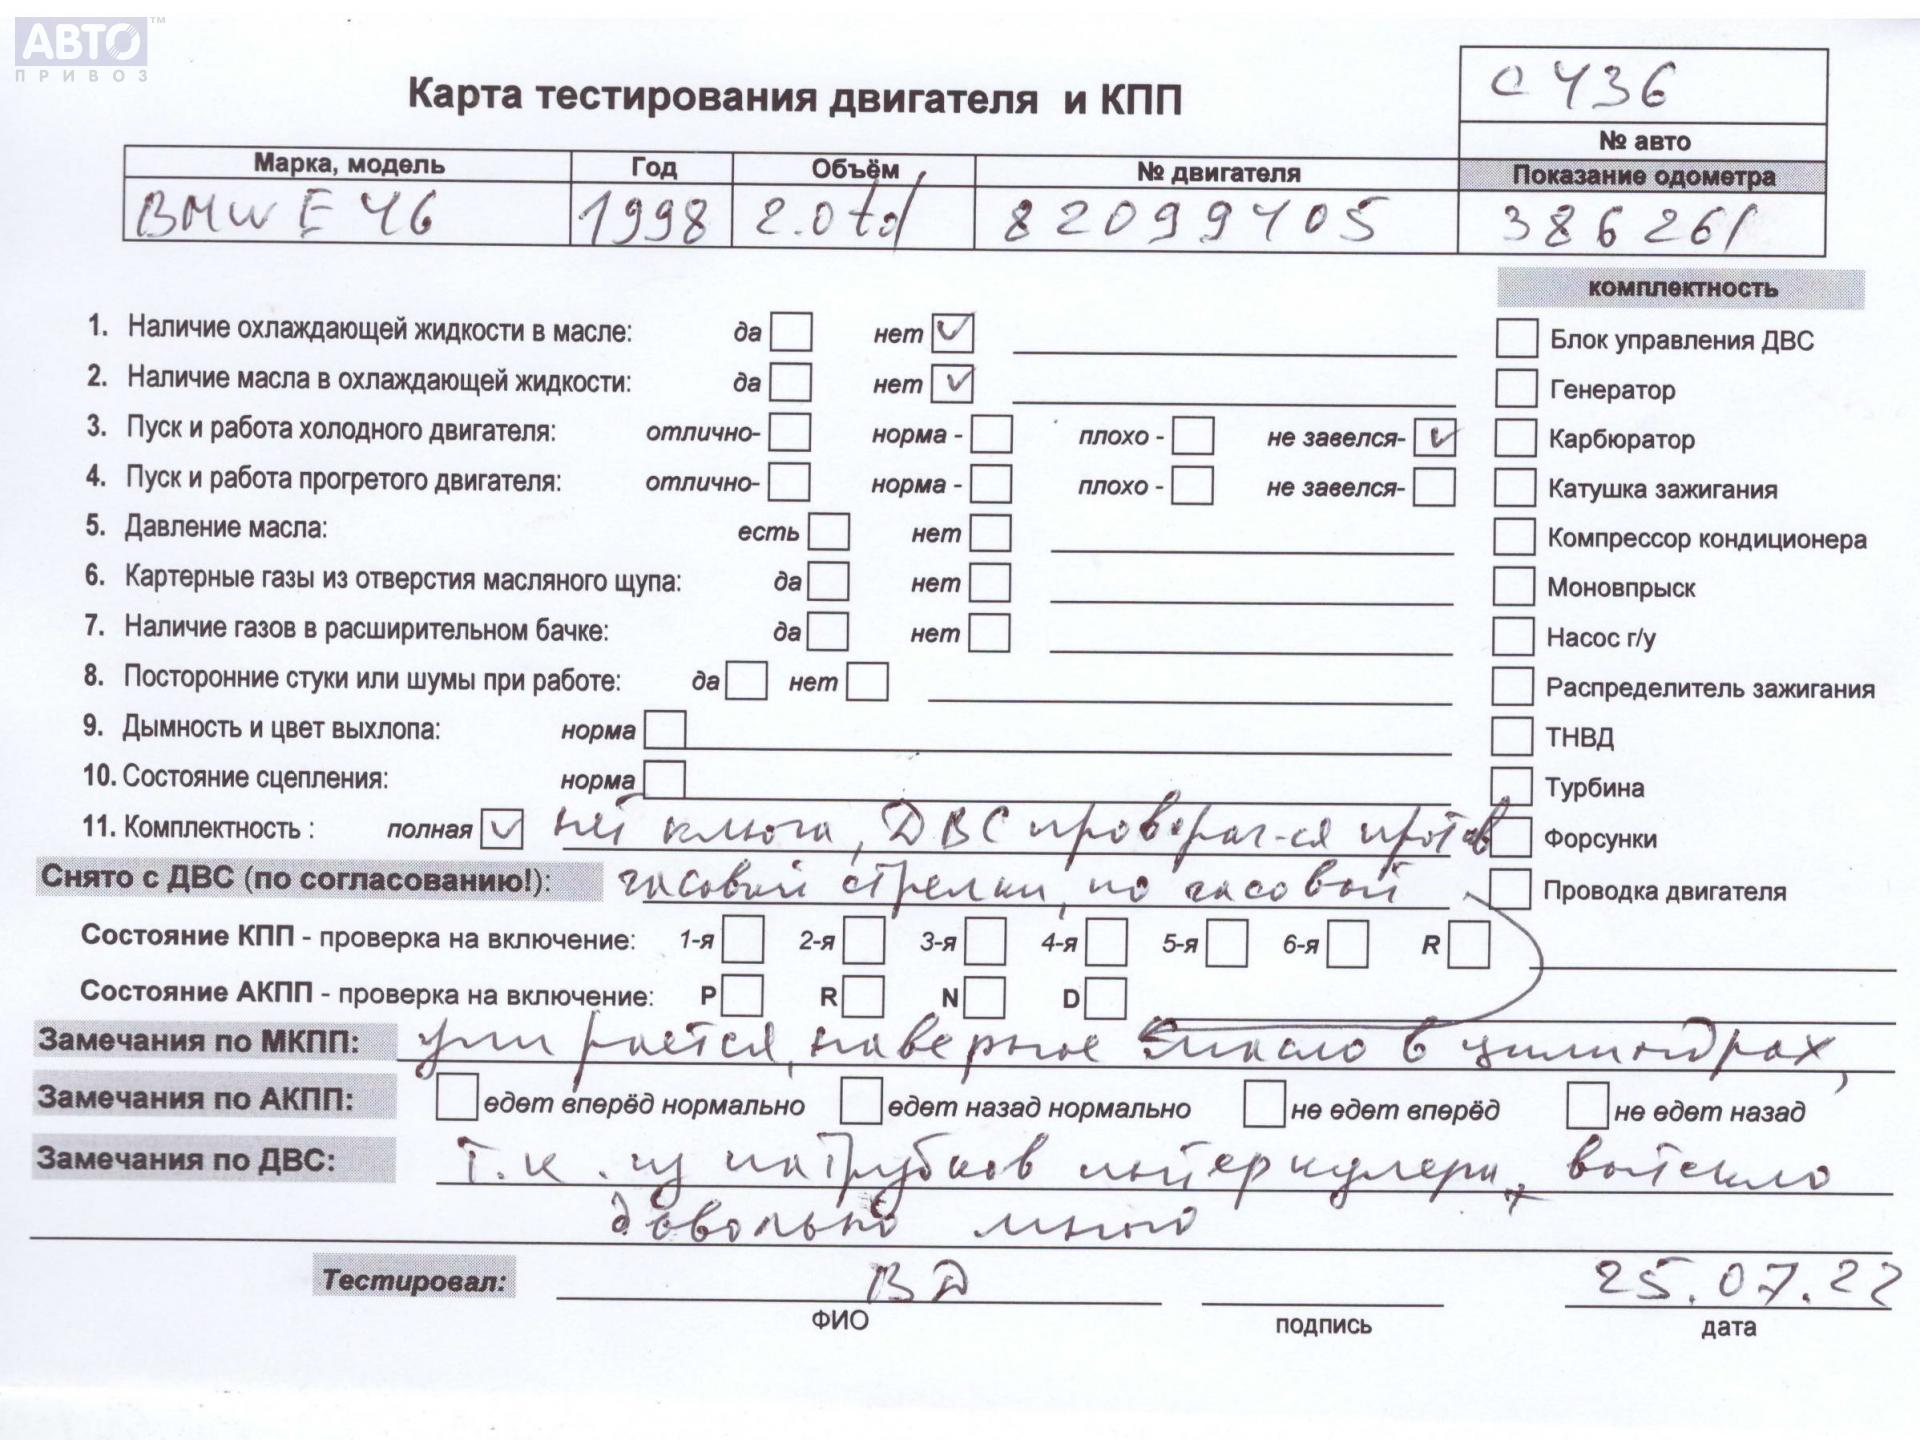 АВТО™
ПРИВОЗ
Карта тестирования двигателя и КПП
С436
№ авто
Марка, модель Год Объём № двигателя Показание одометра
BMW E46 1998 2.0td 82099405 386261
комплектность
1. Наличие охлаждающей жидкости в масле: да нет ✓ Блок управления ДВС
2. Наличие масла в охлаждающей жидкости: да нет ✓ Генератор
3. Пуск и работа холодного двигателя: отлично- норма - плохо - не завелся- ✓ Карбюратор
4. Пуск и работа прогретого двигателя: отлично- норма - плохо - не завелся- Катушка зажигания
5. Давление масла: есть нет Компрессор кондиционера
6. Картерные газы из отверстия масляного щупа: да нет Моновпрыск
7. Наличие газов в расширительном бачке: да нет Насос г/у
8. Посторонние стуки или шумы при работе: да нет Распределитель зажигания
9. Дымность и цвет выхлопа: норма ТНВД
10. Состояние сцепления: норма Турбина
11. Комплектность : полная ✓ нет ключа, ДВС проверач-ся против Форсунки
Снято с ДВС (по согласованию!): часовой стрелки, по часовой Проводка двигателя
Состояние КПП - проверка на включение: 1-я 2-я 3-я 4-я 5-я 6-я R
Состояние АКПП - проверка на включение: P R N D
Замечания по МКПП: упирается, наверное масло в цилиндрах,
Замечания по АКПП: едет вперёд нормально едет назад нормально не едет вперёд не едет назад
Замечания по ДВС: т.к. из патрубков интеркулера вытекло
довольно много
Тестировал: ВД 25.07.22
ФИО подпись дата